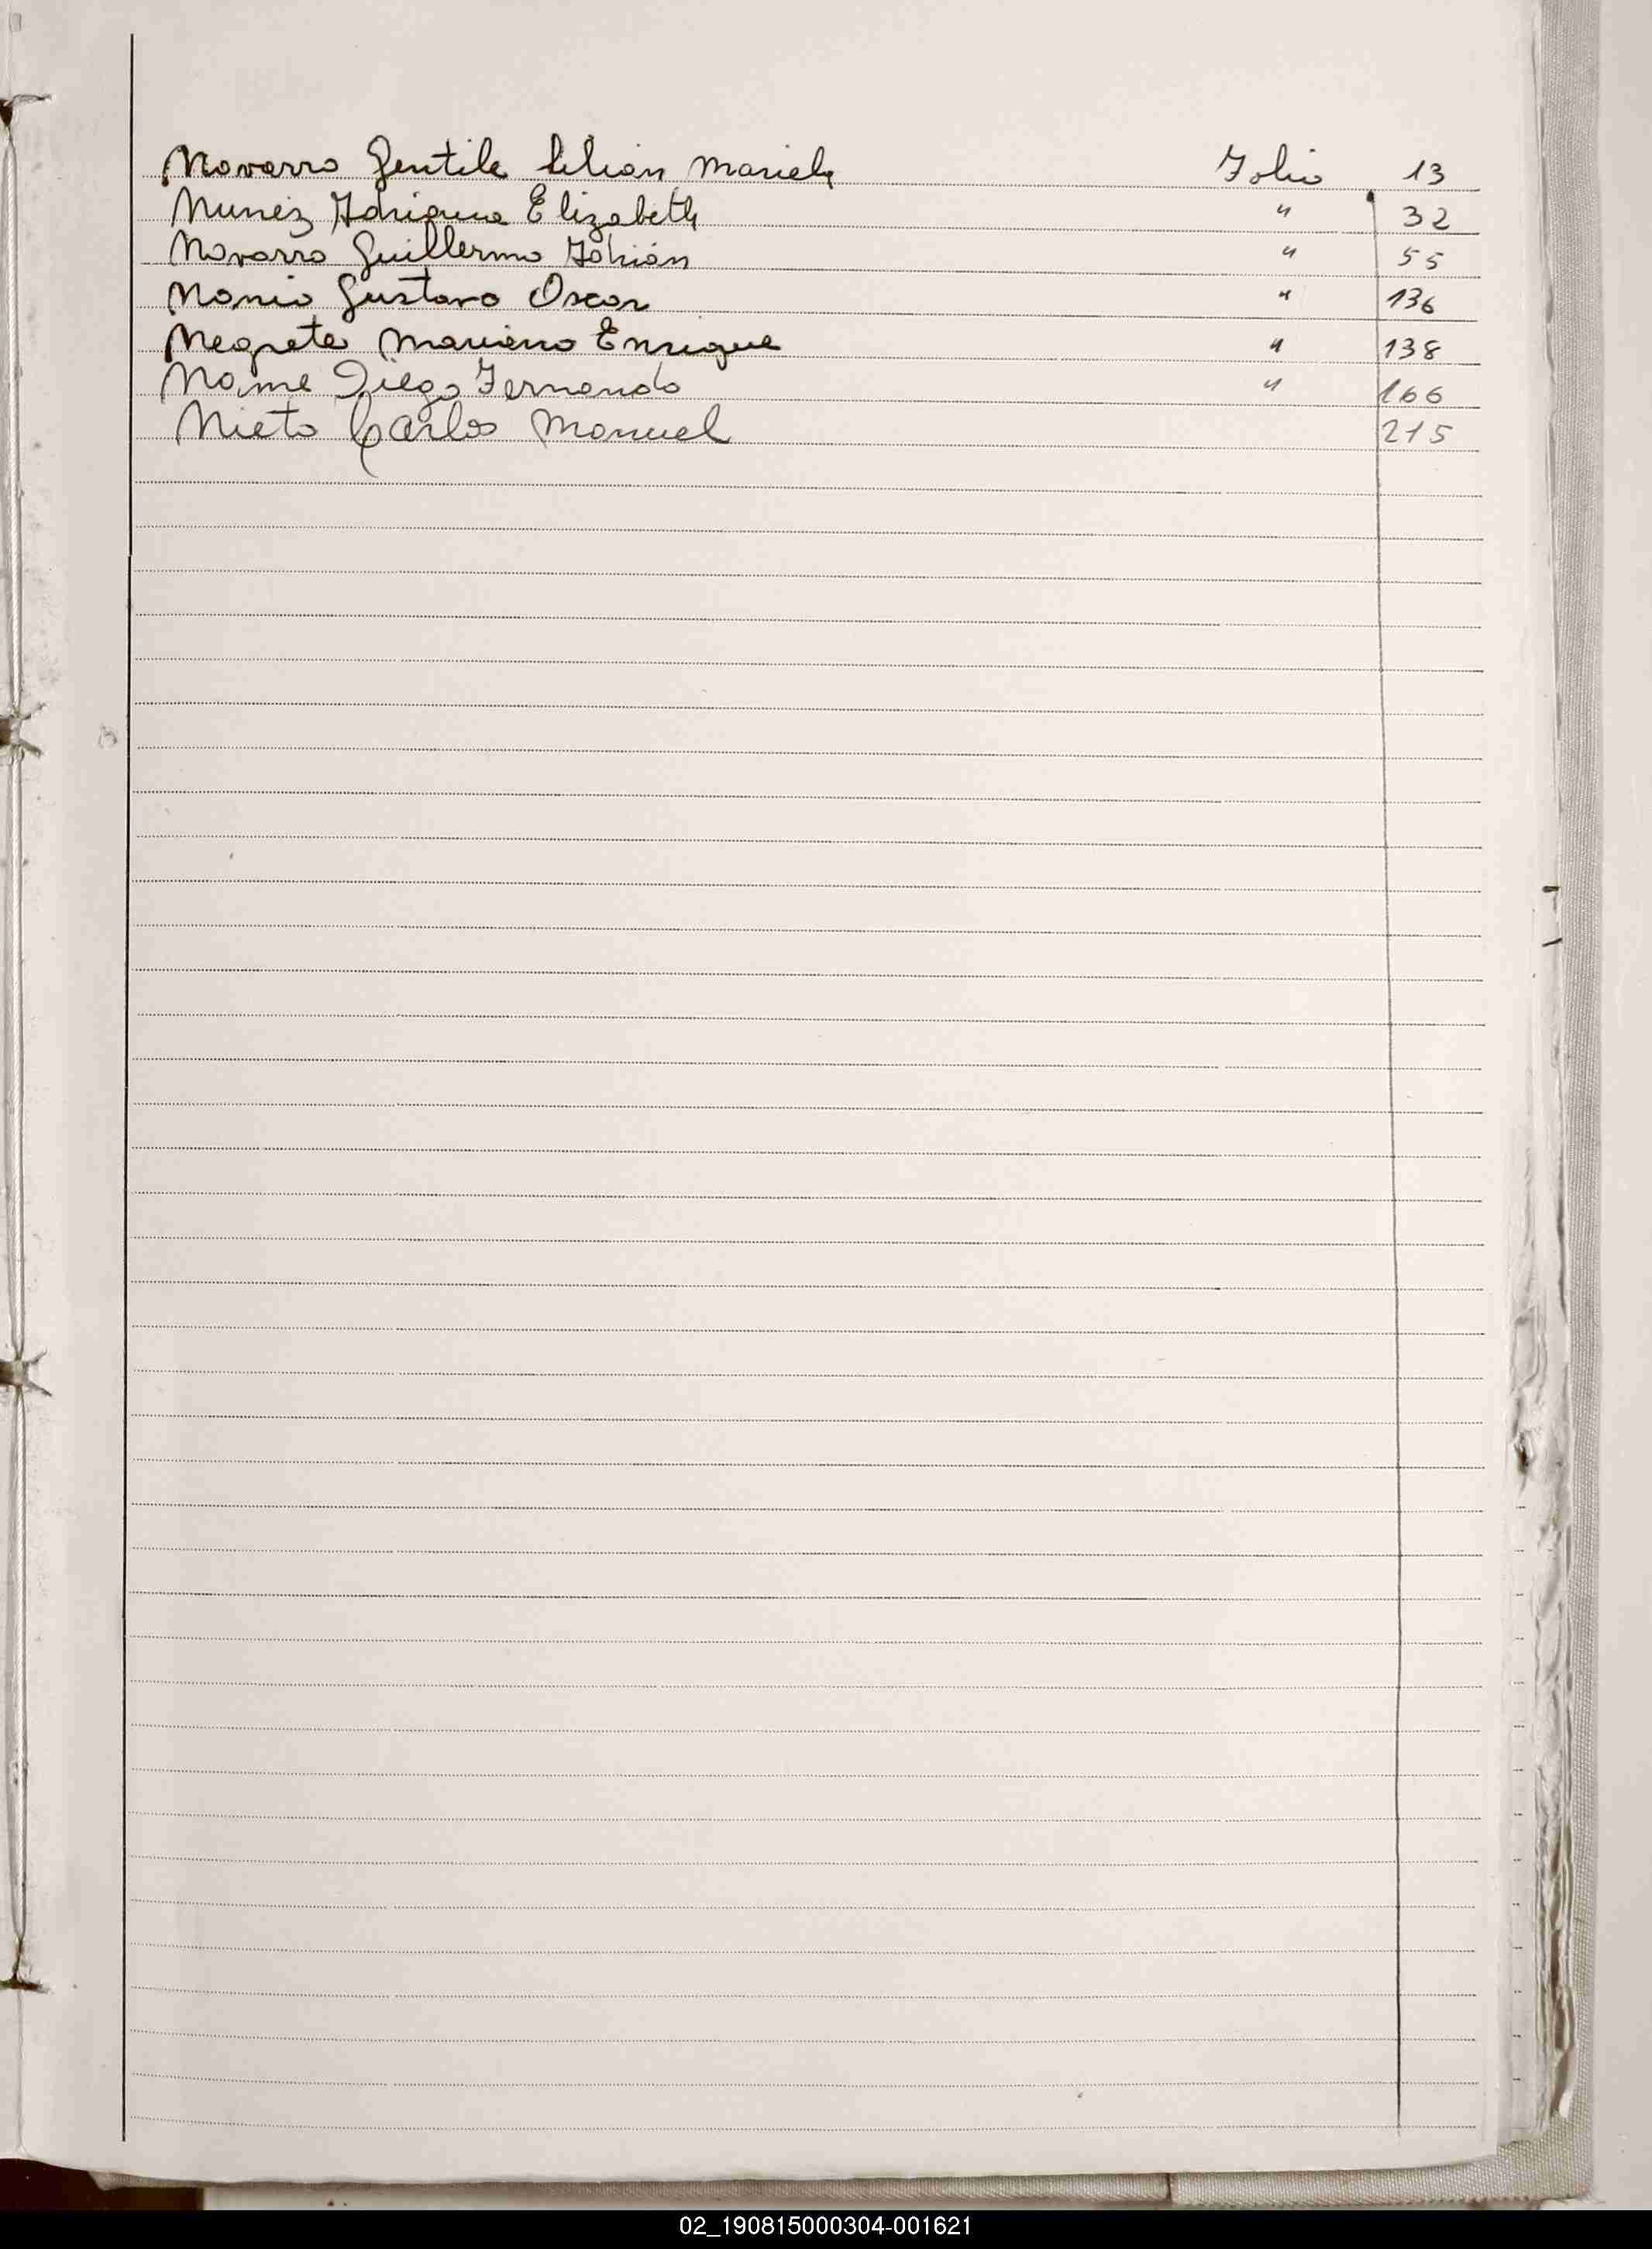 Navarro Gentile Lilian Mariela Folio 13
Nuñez Adriana Elizabeth " 32
Navarro Guillermo Fabián " 55
Gustavo Oscar " 136
Negrete Mariano Enrique " 138
Name Diego Fernando " 166
Nieto Carlos Manuel 215
02_190815000304-001621